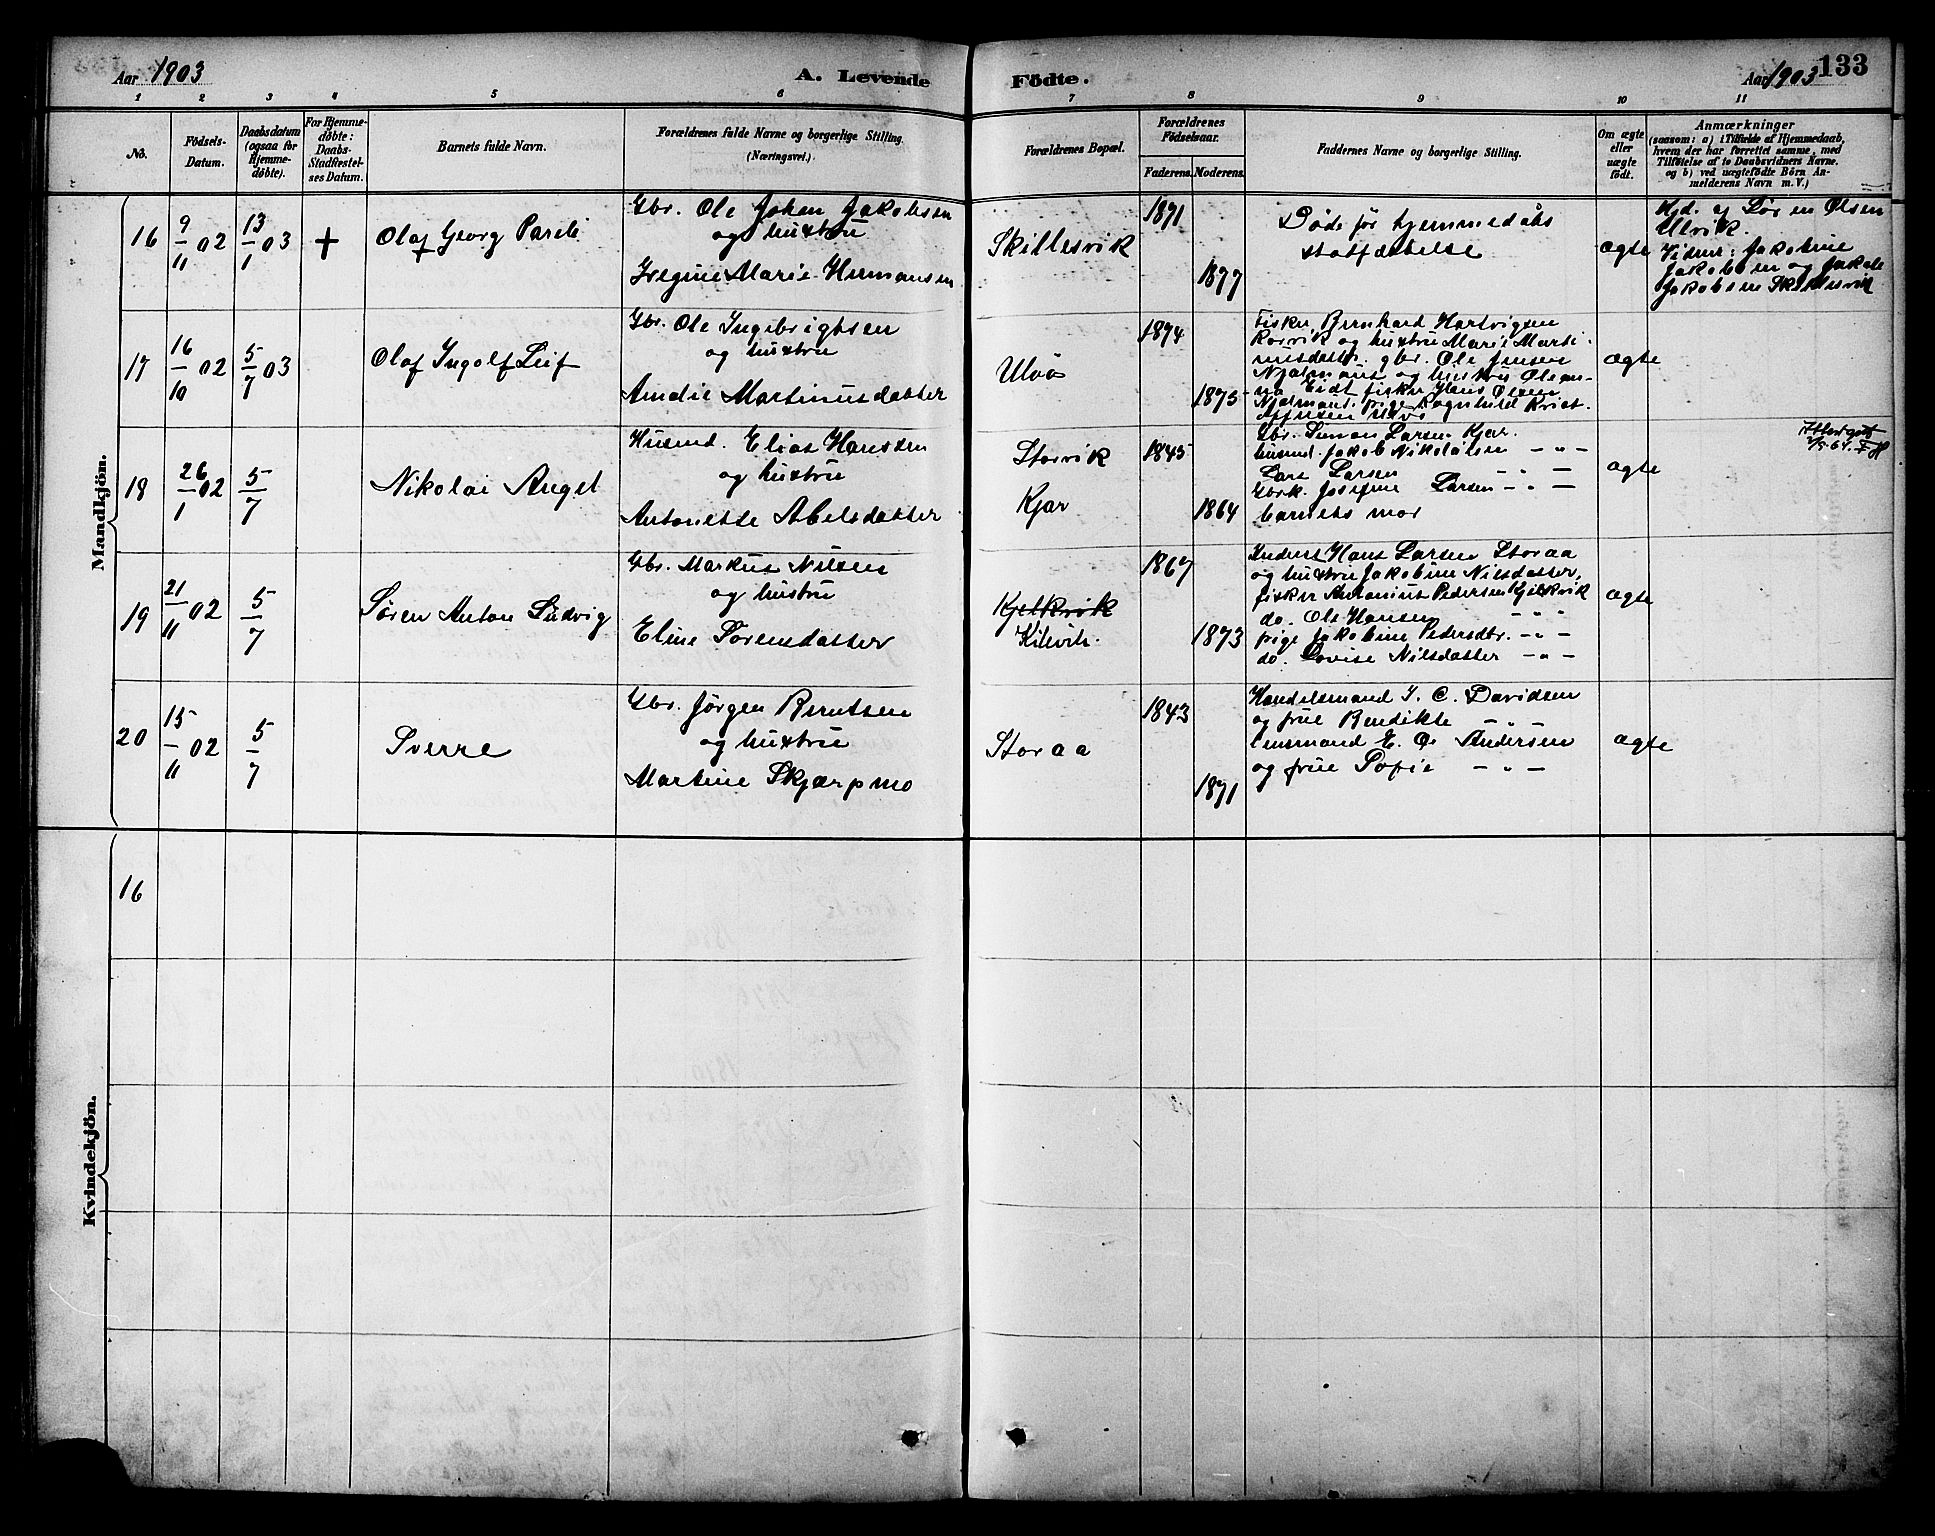 Aar 1903
A. Levende Födte.
Aar 1903
133
1 2 3 4 5 6 7 8 9 10 11
No.
Födsels-
Datum.
Daabsdatum
(ogsaa for
Hjemme-
døbte).
For Hjemme-
døbte:
Daabs-
Stadfæstel-
ses Datum.
Barnets fulde Navn.
Forældrenes fulde Navne og borgerlige Stilling.
(Næringsvei.)
Forældrenes Bopæl.
Forældrenes
Födselsaar.
Faderens. Moderens.
Faddernes Navne og borgerlige Stilling.
Om ægte
eller
uægte
født.
Anmærkninger
(saasom: a) i Tilfælde af Hjemmedaab,
hvem der har forrettet samme, med
Tilføielse af to Daabsvidners Navne.
og b) ved uægtefødte Börn An-
melderens Navn m. V.)
Mandkjön.
16
9/11 02
13/1 03
+
Olaf Georg Pareli
Gbr. Ole Johan Jakobsen
og hustru
Regine Marie Hermansen
Skillesvik
1871
1877
Døde før hjemmedåbs
statfæstelse
ægte
Hjd. af Sören Olsen
Ulvik.
Vidner: Jakobine
Jakobsen og Jakob
Jakobsen Skillesvik
17
16/10 02
5/7 03
Olaf Ingolf Leif
Gbr. Ole Ingebrigtsen
og hustru
Amalie Martinusdatter
Ulvö
1874
1875
Fisker Bernhard Hartvigsen
Korvik og hustru Marie Marti-
nusdatter. gbr. Ole Jensen
og hustru
fisker Hans Olsen
pige Ragnhild
ægte
18
26/1 02
5/7
Nikolai Angel
Husmd. Elias Hanssen
og hustru
Antonette Abelsdatter
Storvik
Kjar
1845
1864
Gbr. Simon Larsen Kjar.
husmd. Jakob Nikolaisen - " -
Lars Larsen - " -
Gbrk. Josefine Larsen - " -
barnets mor
ægte
19
21/11 02
5/7
Søren Anton Ludvig
Gbr. Markus Nilsen
og hustru
Eline Sørensdatter
Kjelkvik
Kilvik.
1867
1873
Hans Larsen Storaa
og hustru Jakobine Nilsdatter,
fisker Antonius Pedersen Kjelkvik
do. Ole Hansen - " -
pige Jakobine Pedersdtr. - " -
do. Lovise Nilsdatter - " -
ægte
20
15/11 02
5/7
Sverre
Gbr. Jørgen Berntsen
og hustru
Martine Skjærpmo
Storaa
1843
1871
Handelsmand J. C. Davidsen
og frue Bendikte - " -
lensmand E. O. Andersen
og frue Sofie - " -
ægte
Kvindekjön.
16